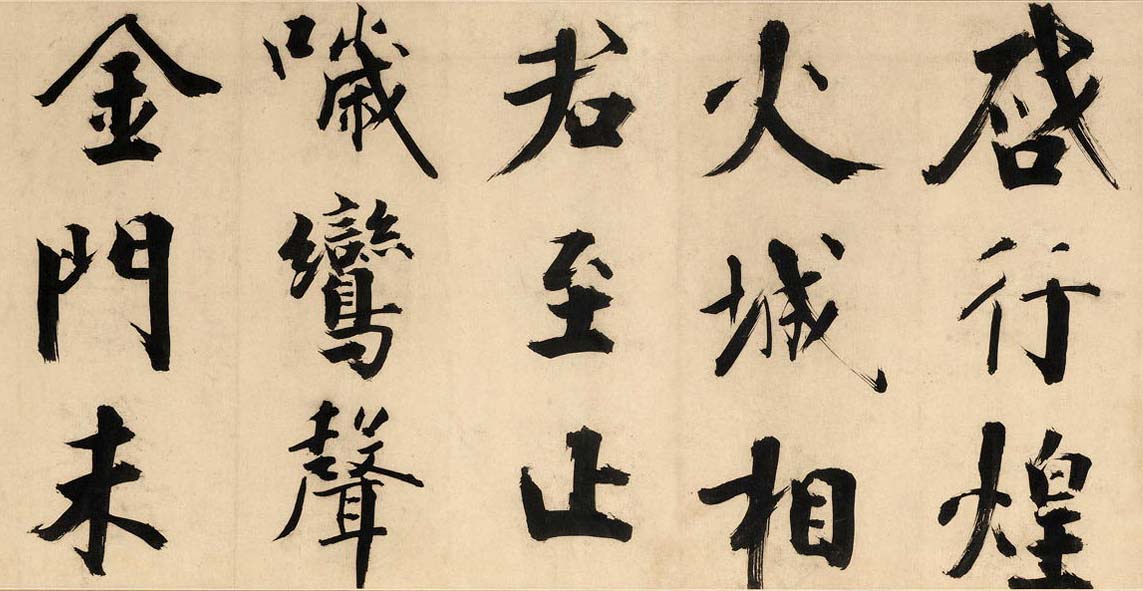 啓行煌
火城相
君至止
噦鸞聲
金門未